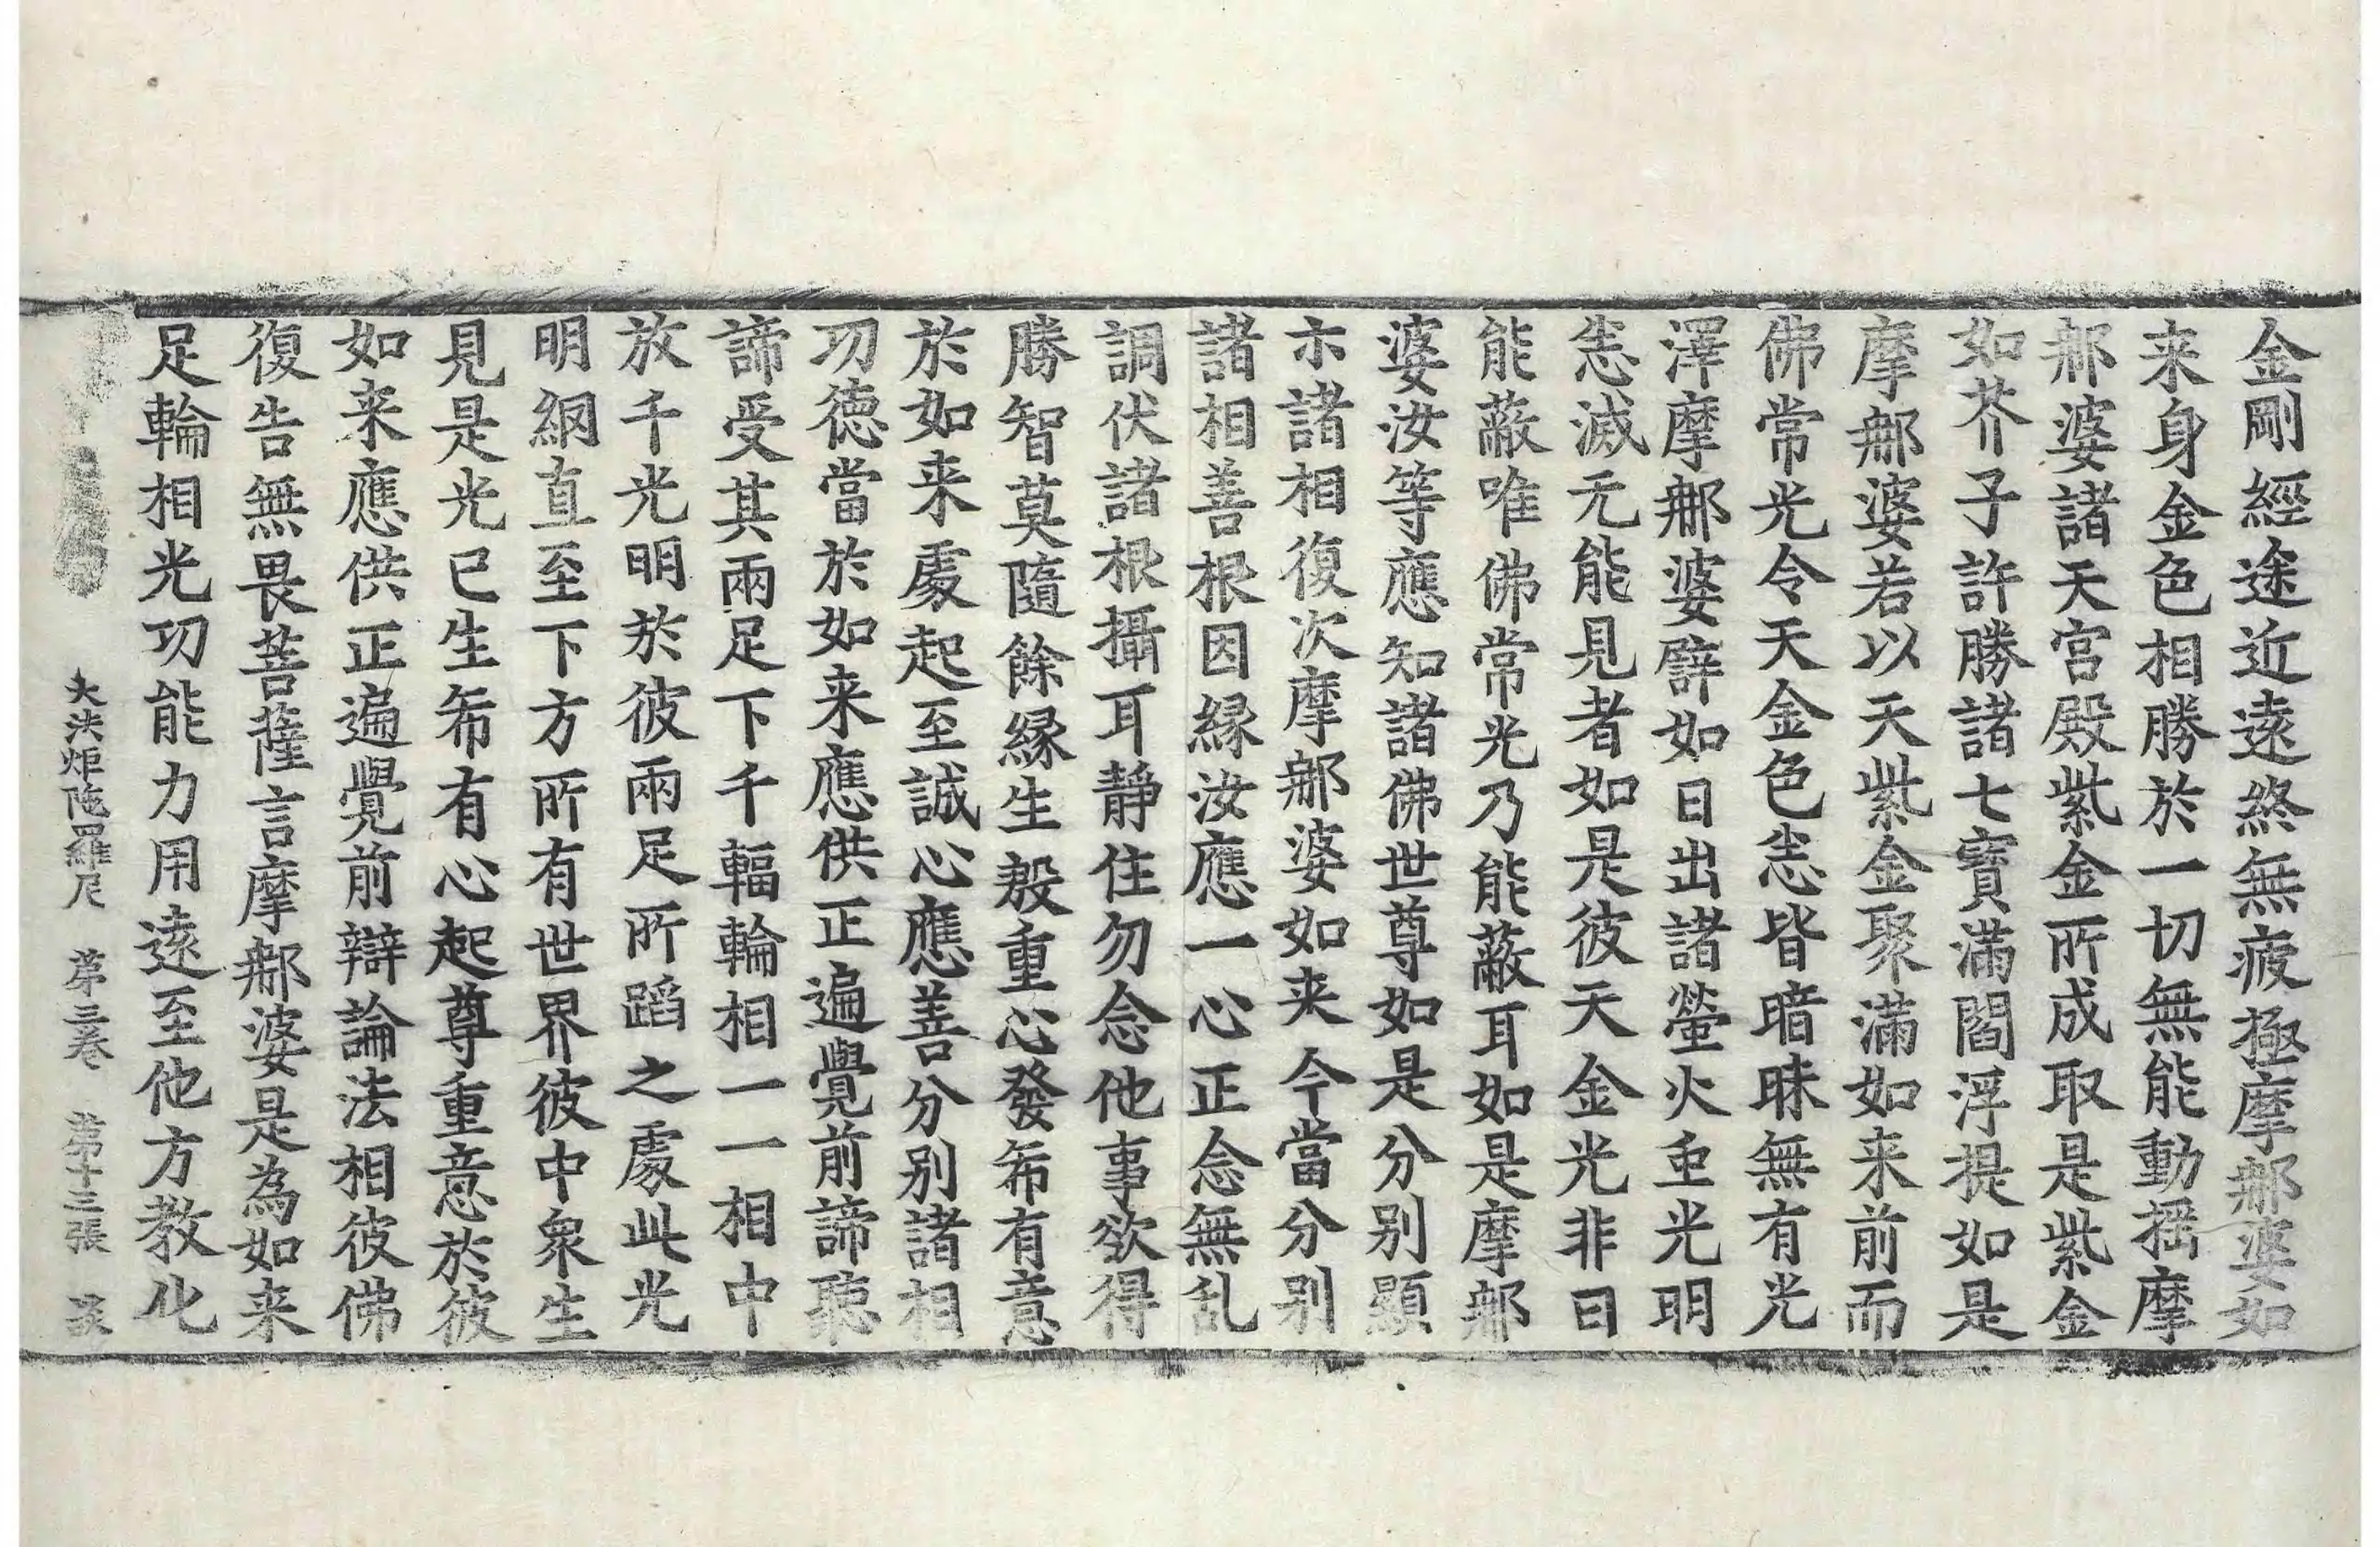 金剛經途近遠終無疲極摩䣧婆如
来身金色相勝於一切無能動揺摩
䣧婆諸天宮殿紫金所成取是紫金
如芥子許勝諸七寶滿閻浮提如是
摩䣧婆若以天紫金聚滿如来前而
佛常光令天金色恚皆暗昧無有光
澤摩䣧婆譬如日出諸螢火虫光明
恚滅无能見者如是彼天金光非日
能蔽唯佛常光乃能蔽耳如是摩䣧
婆汝等應知諸佛世尊如是分别顯
示諸相復次摩䣧婆如来今當分别
諸相善根因縁汝應一心正念無乱
調伏諸根攝耳靜住勿念他事欲得
勝智莫隨餘縁生殷重心發希有意
於如来處起至誠心應善分别諸相
功徳當於如来應供正遍覺前諦聽
諦受其兩足下千輻輪相一一相中
放千光明於彼兩足所蹈之處此光
明網直至下方所有世界彼中衆生
見是光已生希有心起尊重意於彼
如来應供正遍覺前辯論法相彼佛
復告無畏菩薩言摩䣧婆是為如来
足輪相光功能力用遠至他方教化
大法炬陁羅尼 苐三卷 苐十三張